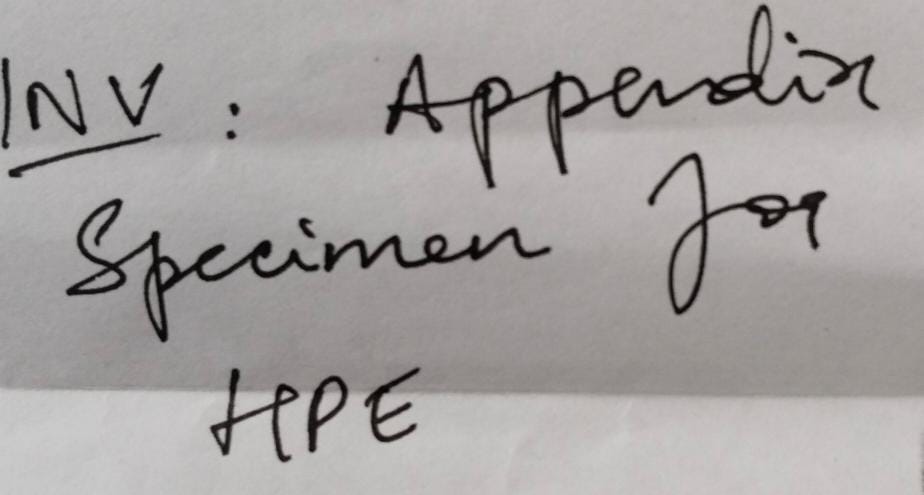 INV : Appendix
Specimen for
HPE